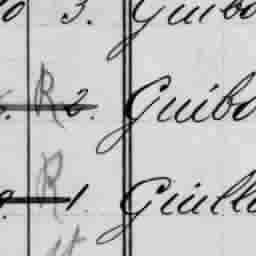 3. Guibo
R 2. Guibo
R 1. Guill